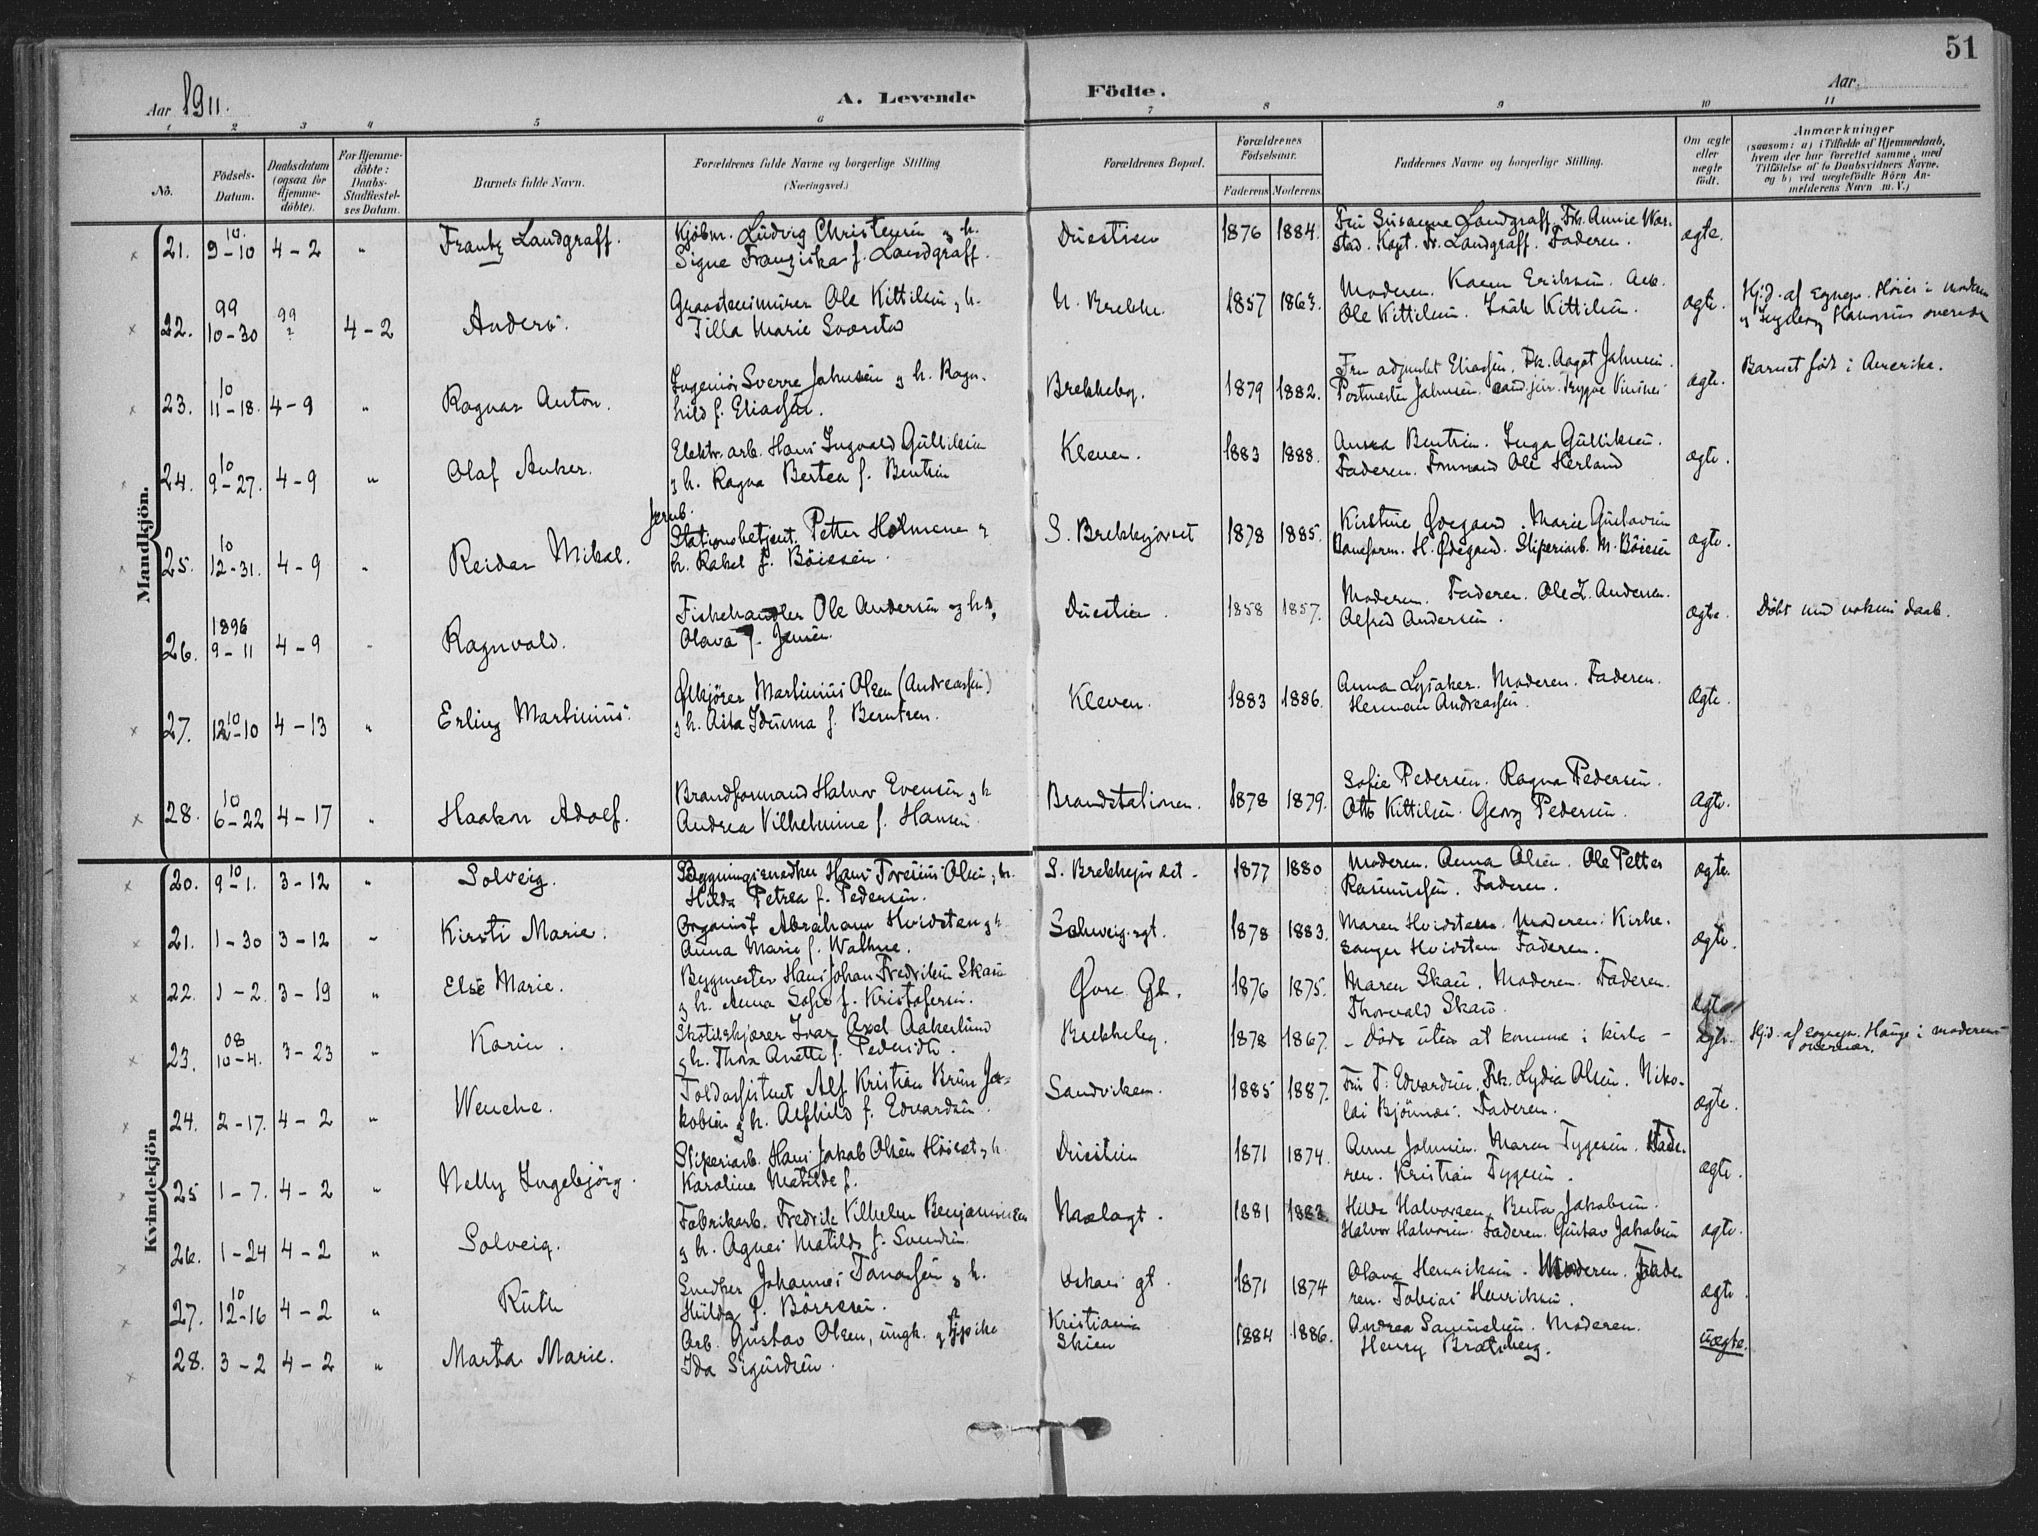 51
Aar 1911.
A. Levende Födte.
Aar
1 2 3 4 5 6 7 8 9 10 11
No.
Födsels-
Datum.
Daabsdatum
(ogsaa for
Hjemme-
döbte).
For Hjemme-
döbte:
Daabs-
Stadfæstel-
ses Datum.
Barnets fulde Navn.
Forældrenes fulde Navne og borgerlige Stilling
(Næringsvei.)
Forældrenes Bopæl.
Forældrenes
Födselsaar.
Faderens Moderens.
Faddernes Navne og borgerlige Stilling.
Om ægte
eller
uægte
födt.
Anmærkninger
(saasom: a) i Tilfælde af Hjemmedaab,
hvem der har forrettet samme, med
Tilföielse af to Daabsvidners Navne.
og b) ved uægtefödte Börn An-
melderens Navn m. V.)
Mandkjön.
21. 10. 9-10 4-2 " Frantz Landgraff. Kjöbm. Ludvig Christensen g. h.
Signe Franziska f. Landgraff. Duestien 1876 1884. Fru Susanne Landgraff. Frk. Annie War-
stad. Kapt. Fr. Landgraff. Faderen. ægte.
22. 99 10-30 99 ? 4-2 Anders. Graastensmurer Ole Kittilsen g. h.
Tilla Marie Svarstad N. Brekke. 1857 1863. Moderen. Karen Eriksen. Arb.
Ole Kittilsen. Isak Kittilsen. ægte. Hjd. af sognepr. Höier i moderens
23. 10 11-18. 4-9 " Ragnar Anton. Ingeniör Sverre Johnsen g. h. Ragn-
hild f. Eliassen. Brekkeby. 1879 1882. Fru adjunkt Eliassen. Frk. Aagot Johnsen.
Postmester Johnsen. cand. jur. Trygve ægte. Barnet föd i Amerika.
24. 10 9-27. 4-9 " Olaf Anker. Elektr. arb. Hans Ingvald Gulliksen
g. h. Ragna Bertea f. Bentsen Kleven. 1883 1888. Anna Bentsen. Inga Gulliksen.
Faderen. Formand Ole Herland ægte.
25. 10 12-31. 4-9 " Reidar Mikal. Jernb.
Stationsbetjent Petter Holmene g
h. Rakel f. Böiesen. S. Brekkejordet 1878 1885. Kirstine Ødegaard. Marie Gustavsen
Baneform. H. Ødegaard. Sliperiarb. M. Böiesen ægte.
26. 1896 9-11 4-9 " Ragnvald. Fiskehandler Ole Andersen og h.
Olava f. Jensen. Duestien. 1858 1857. Moderen. Faderen. Ole Z. Andersen.
Alfred Andersen. ægte. Döbt med voksen daab.
27. 10 12-10 4-13 " Erling Martinius. Ølkjörer Martinius Olsen (Andreassen)
g. h. Aita Idunna f. Berntsen. Kleven. 1883 1886. Anna Lysaker. Moderen. Faderen.
Herman Andreassen. ægte.
28. 10 6-22 4-17 " Haakon Adolf. Brandformand Halvor Evensen g. h
Andrea Vilhelmine f. Hansen Brandstationen. 1878 1879. Sofie Pedersen. Ragna Pedersen.
Otto Kittilsen. Georg Pedersen. ægte.
Kvindekjön
20. 10 9-1. 3-12 " Solveig. Bygningssnedker Hans Toresius Olsen g. h.
Hilda Petrea f. Pedersen. S. Brekkejordet. 1877 1880 Moderen. Anna Olsen. Ole Petter
Rasmussen. Faderen. ægte.
21. 1-30 3-12 " Kirsti Marie. Organist Abraham Hvidsten g. h
Anna Marie f. Walhne. Schweig.gt. 1878 1883. Maren Hvidsten. Moderen. Kirke-
sanger Hvidsten Faderen. ægte.
22. 1-2. 3-19 " Else Marie. Bygmester Hans Johan Fredriksen Skau
g. h. Anna Sofie f. Kristofersen. Øvre Gt. 1876 1875. Maren Skau. Moderen. Faderen.
Thorvald Skau. ægte
23. 08 10-4. 3-23 " Karin. Skotöiskjærer Ivar Axel Aakerlund
g. h. Thora Anette f. Brekkeby. 1878 1867. - döde uten at komme i kirke - ægte. Hjd. af sognepr. Hauge i moderens
overvær.
24. 2-17. 4-2 " Wenche. Toldassistent Alf Kristian Brun Ja-
kobsen g. h. Alfhild f. Edvardsen. Sandviken. 1885 1887. Fru T. Edvardsen. Frk. Lydia Olsen. Niko-
lai Björnnes. Faderen. ægte.
25 1-7. 4-2 " Nelly Ingebjörg. Sliperiarb. Hans Jakob Olsen Höiset g. h.
Karoline Matilde f. Duestien 1871 1874. Anne Johnsen. Maren Tygesen. Fade-
ren. Kristian Tygesen. ægte.
26. 1-24 4-2 " Solveig. Fabrikarb. Fredrik Vilhelm Benjaminsen
g. h. Agnes Matilde f. Svendsen. Mælagt. 1881 1883. Hilda Halvorsen. Berta Jakobsen.
Halvor Halvorsen. Faderen. Gustav Jakobsen ægte.
27. 10 12-16 4-2 " Ruth Snedker Johannes Tanassen g. h.
Hulda f. Börresen. Oskars gt. 1871 1874 Olava Henriksen. Moderen. Fade-
ren. Tobias Henriksen. ægte.
28. 3-2 4-2 " Marta Marie. Arb. Gustav Olsen, ungk. g pike
Ida Sigurdsen. Kristiania
Skien 1884 1886. Andrea Samuelsen. Moderen.
Henry Bratsberg. uægte.